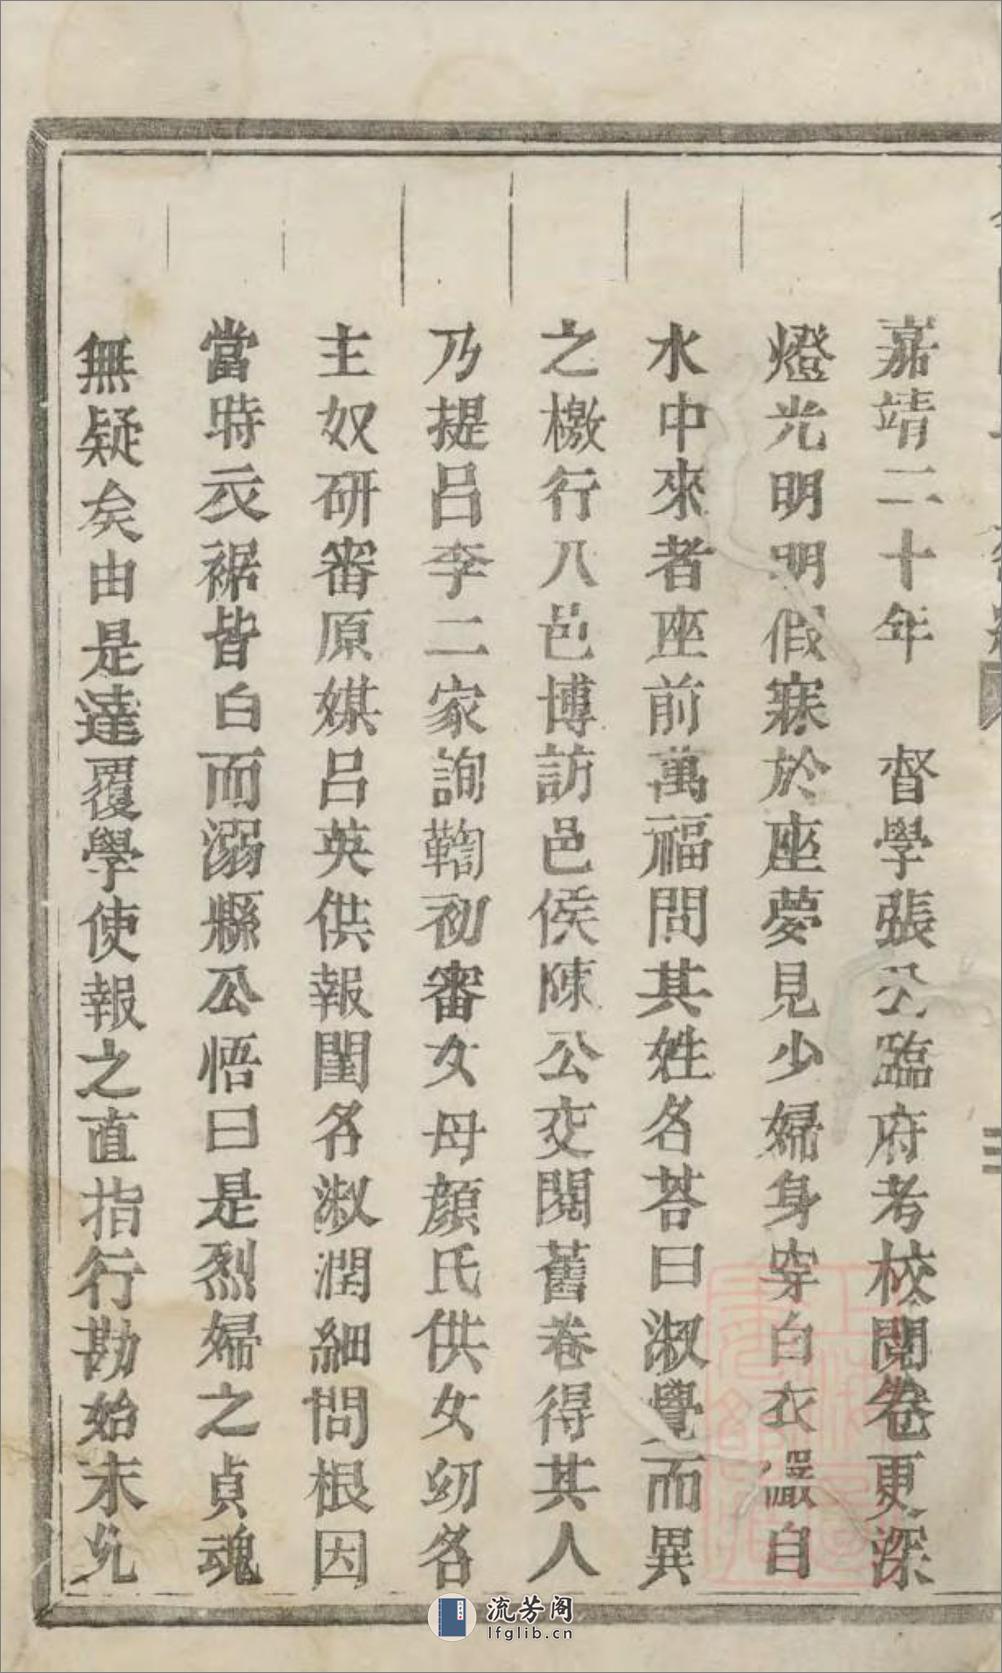 嘉靖二十年　督學張公臨府考校閱卷更深
燈光明明假寐於座夢見少婦身穿白衣儼自
水中來者座前萬福問其姓名荅曰淑覺而異
之檄行八邑博訪邑侯陳公交閱舊卷得其人
乃提呂李二家詢鞫初審女母顏氏供女幼名
主奴研審原媒呂英供報閨名淑潤細問根因
當時衣裾皆白而溺縣公悟曰是烈婦之貞魂
無疑矣由是達覆學使報之直指行勘始末允
流芳阁
lfglib.cn